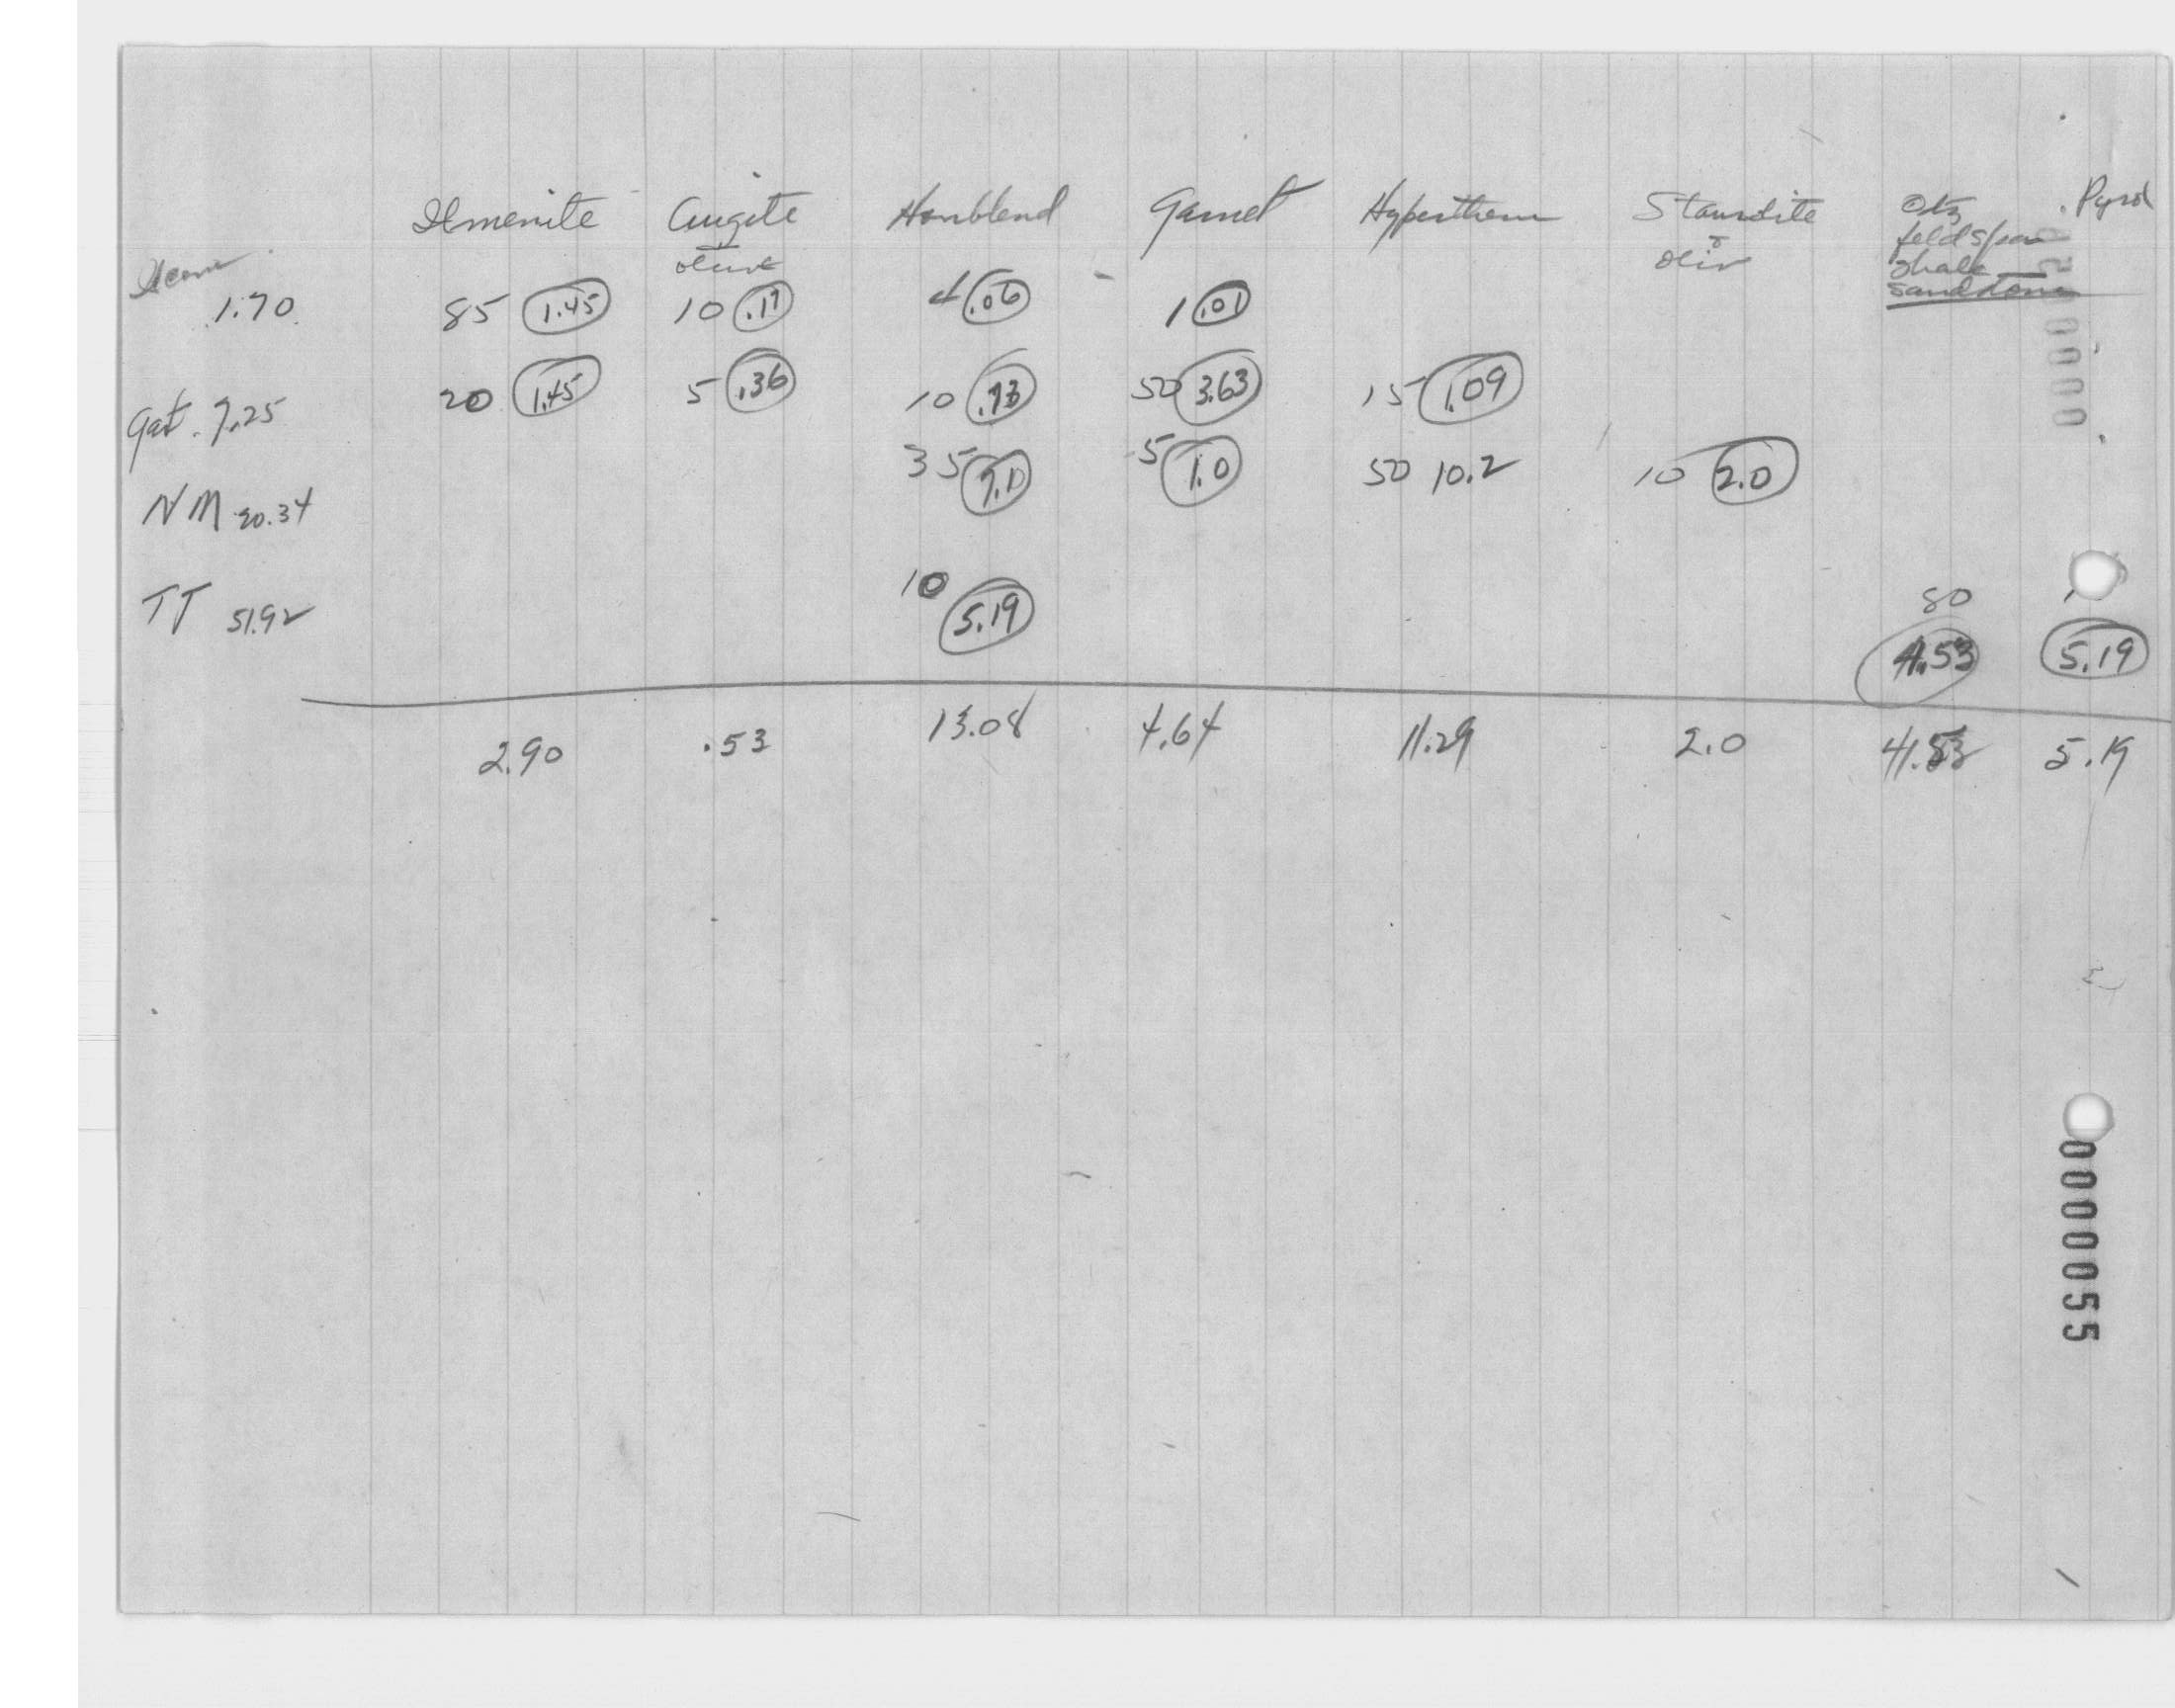 Ilmenite Augite Hornblend Garnet Hypersthene Staurolite Qtz Pyrol
olive oliv feldspar
shale
sandstone
1.70 85 1.45 10 .17 4 .06 1 .01
Gat. 7.25 20 1.45 5 .36 10 .73 50 3.63 15 1.09
NM 20.34 35 7.10 5 1.0 50 10.2 10 2.0
TT 51.92 10 5.19 80 41.53 5.19
2.90 .53 13.08 4.64 11.29 2.0 41.53 5.19
0000055